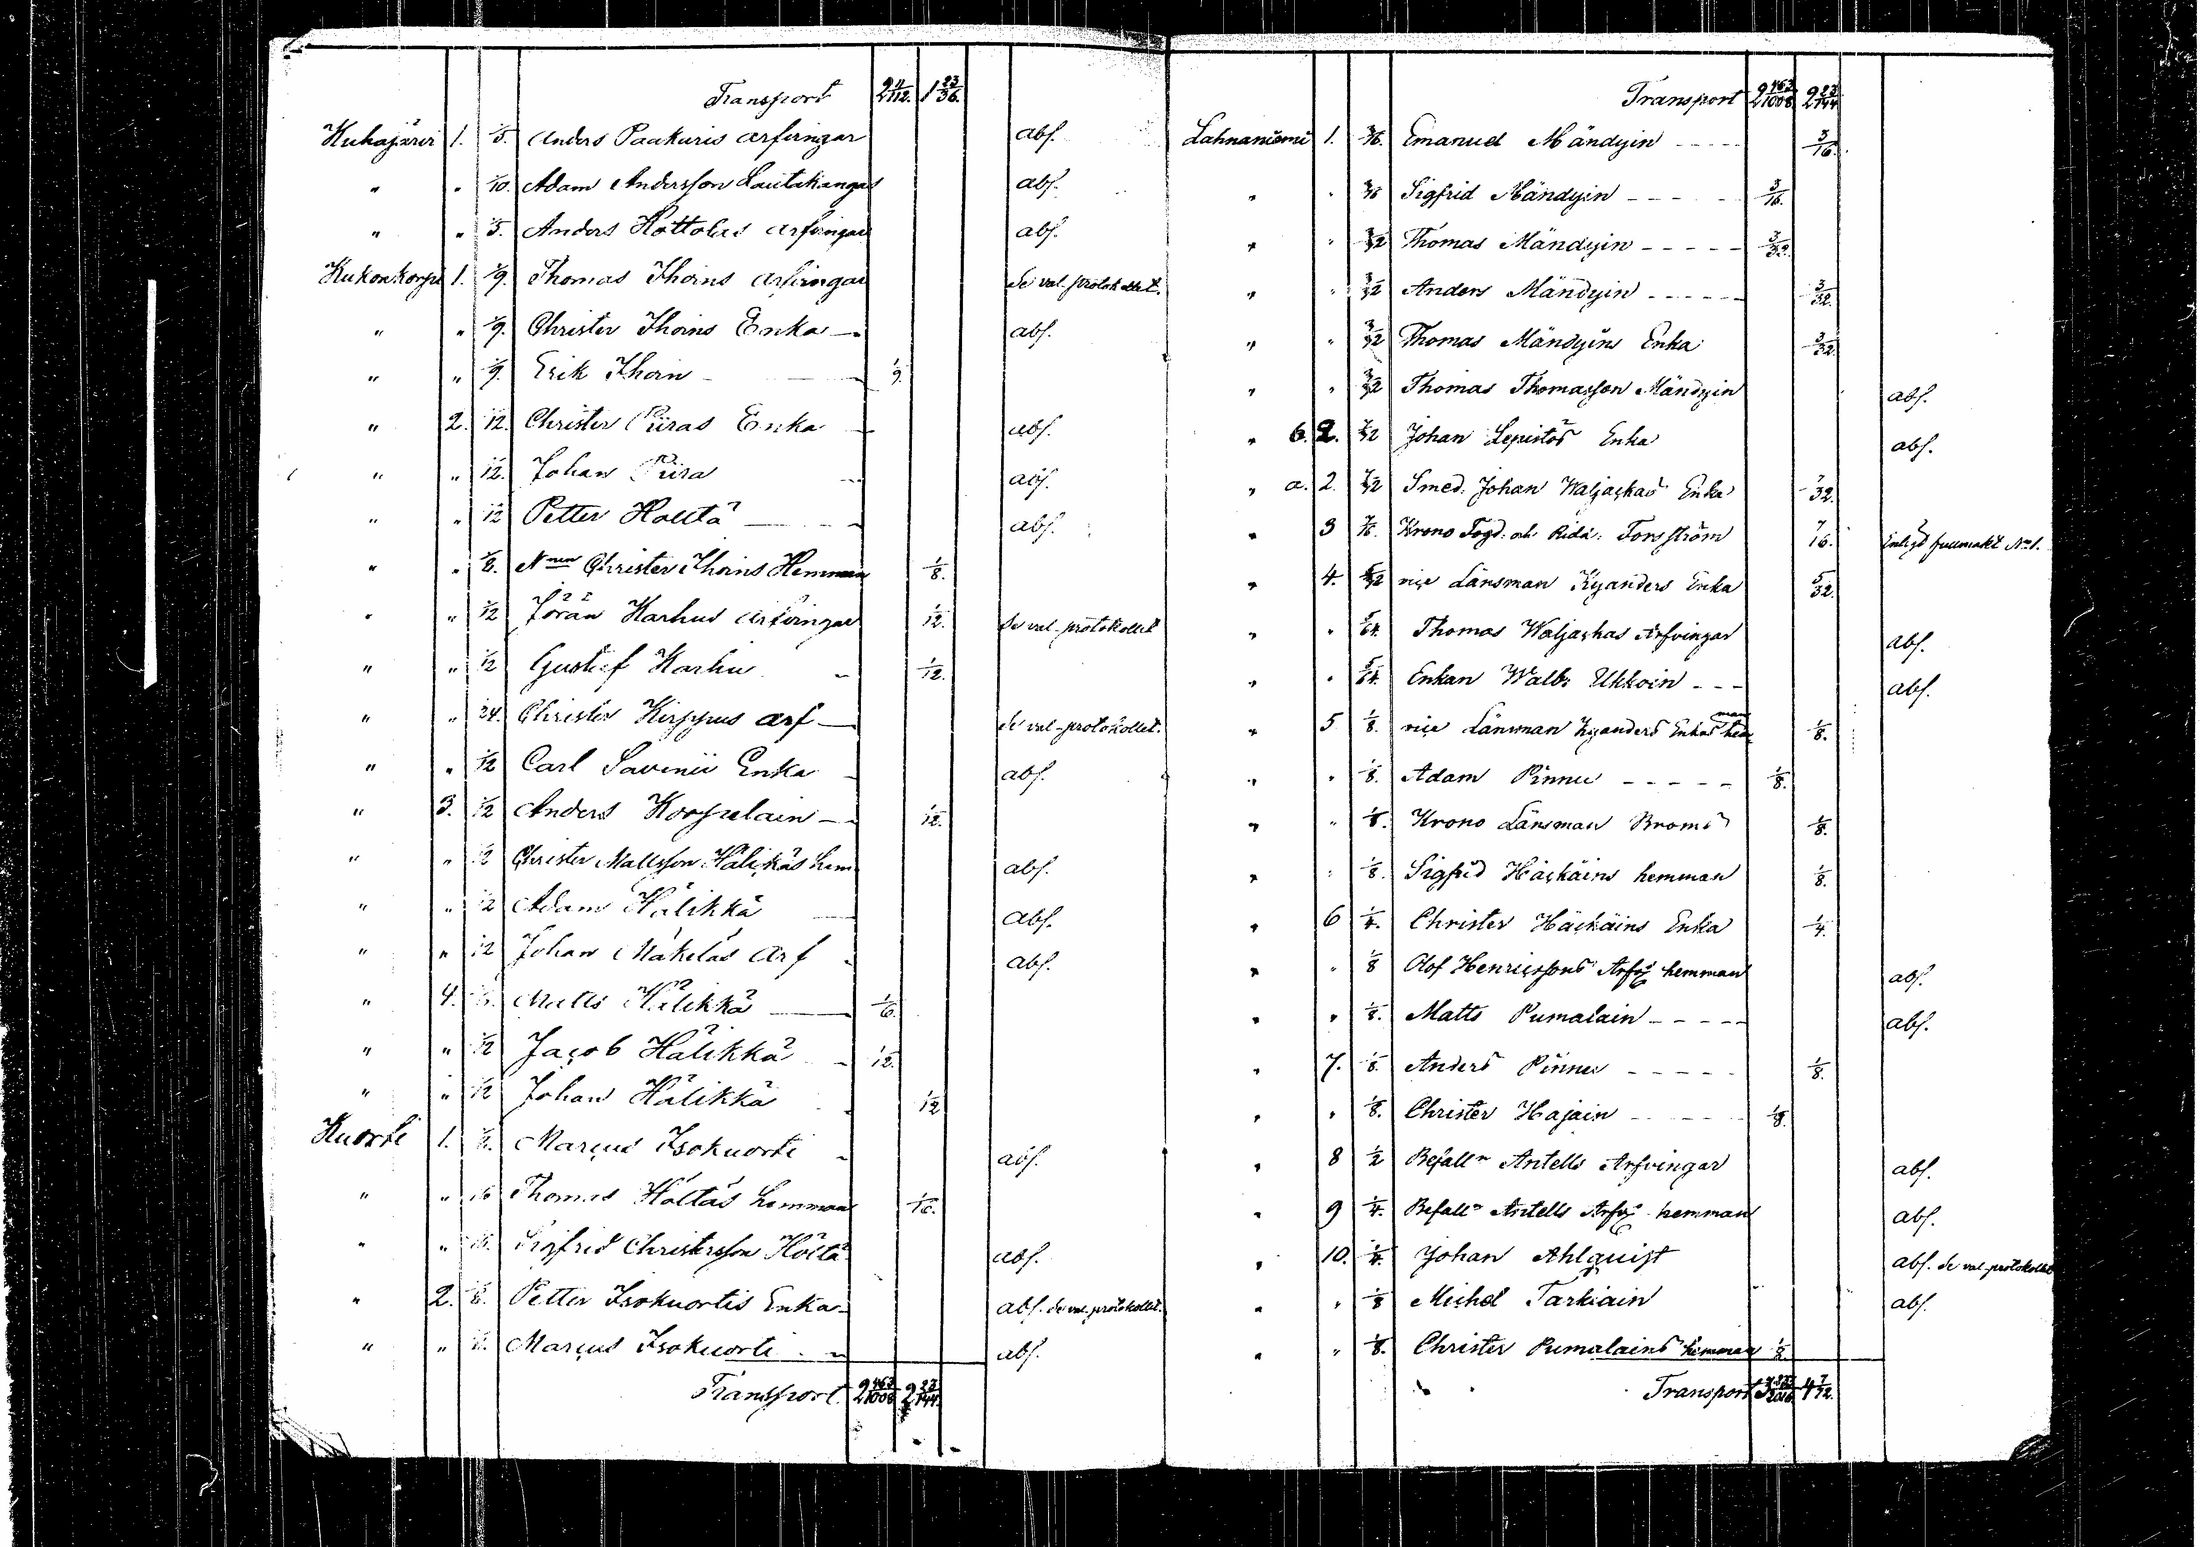 Transport 2 11/112. 1 23/36.
Kuhajärvi 1. 1/5. Anders Paakuris arfvingar abs.
" " 1/10. Adam Andersson Lautakangas abs.
" " 1/5. Anders Hottolas arfvingar abs.
Kukonkorpi 1. 1/9. Thomas Thoins arfvingar Se val-protokollet.
" " 1/9. Christer Thoins Enka abs.
" " 1/9. Erik Thoin 1/9.
" 2. 1/12. Christer Piiras Enka abs.
" " 1/12. Johan Piira abs.
" " 1/12 Petter Hölttä abs.
" " 1/8. Christer Thoins Hemman 1/8.
" " 1/12 Jöran Karhus arfvingar 1/12. Se val-protokollet
" " 1/12 Gustaf Karhu 1/12.
" " 1/24. Christer Kirppus arf Se val-protokollet.
" " 1/12 Carl Savenii Enka abs.
" 3. 1/12 Anders Korpelain 1/12.
" " 1/12 Christer Mattsson Hälikäs hem abs.
" " 1/12 Adam Hälikkä abs.
" " 1/12 Johan Mäkeläs arf abs.
" 4. Matts Hälikkä 1/6.
" " 1/12 Jacob Hälikkä 1/12.
" " 1/12 Johan Hälikkä 1/12
Kuorti 1. Marcus Isokuorti abs.
" " 1/16 Thomas Hölttäs hemman 1/16.
" " 1/16. Sigfrid Christersson Hölttä abs.
" 2. 1/8. Petter Isokuortis Enka abs. Se val-protokollet.
" " Marcus Isokuorti abs.
Transport 2 463/1008 2 23/144.
Transport 2 463/1008 2 23/144.
Lahnaniemi 1. 3/16. Emanuel Mändyin 3/16.
" " 3/16 Sigfrid Mändyin 3/16.
" " 3/32 Thomas Mändyin 3/32.
" " 3/32 Anders Mändyin 3/32.
" " 3/32 Thomas Mändyins Enka 3/32.
" " 3/32 Thomas Thomasson Mändyin abs.
" b. 2. 7/32 Johan Lepistös Enka abs.
" a. 2. 7/32 Smed. Johan Waljackas Enka 7/32.
" 3 7/16. Krono Fogd. och Ridd: Forsström 7/16. Enligt fullmakt No 1.
" 4. 5/32 vice Länsman Kyanders Enka 5/32.
" " 5/64. Thomas Waljackas Arfvingar abs.
" " 5/64. Enkan Walb: Ukkoin abs.
" 5 1/8. vice Länsman Kyanders Enkas hemman 1/8.
" " 1/8. Adam Pinnu 1/8.
" " 1/8. Krono Länsman Broms 1/8.
" " 1/8. Sigfrid Häckäins hemman 1/8.
" 6 1/4. Christer Häckäins Enka 1/4.
" " 1/8 Olof Henricssons Arfvs hemman abs.
" " 1/8. Matts Pumalain abs.
" 7. 1/8. Anders Pinnu 1/8.
" " 1/8. Christer Hajain 1/8.
" 8 1/2 Befalln Antells Arfvingar abs.
" 9 1/4. Befalln Antells Arfvs hemman abs.
" 10. 1/4. Johan Ahlquist abs. Se val-protokollet
" " 1/8 Michel Tarkiain abs.
" " 1/8. Christer Pumalains hemman 1/8.
Transport 4 7/72.